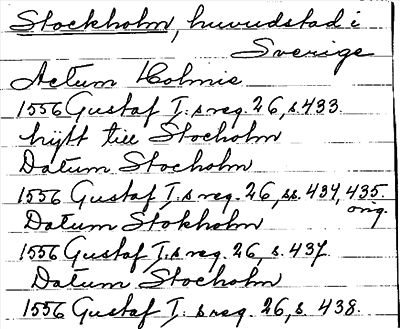 Stockholm, huvudstad i
Sverige
Actum Holmie
1556 Gustaf I:s reg. 26, s. 433.
hijtt till Stocholm
Datum Stocholm
1556 Gustaf I:s reg. 26, ss. 434, 435.
orig.
Datum Stokholm
1556 Gustaf I:s reg. 26, s. 437.
Datum Stocholm
1556 Gustaf I:s reg. 26, s. 438.